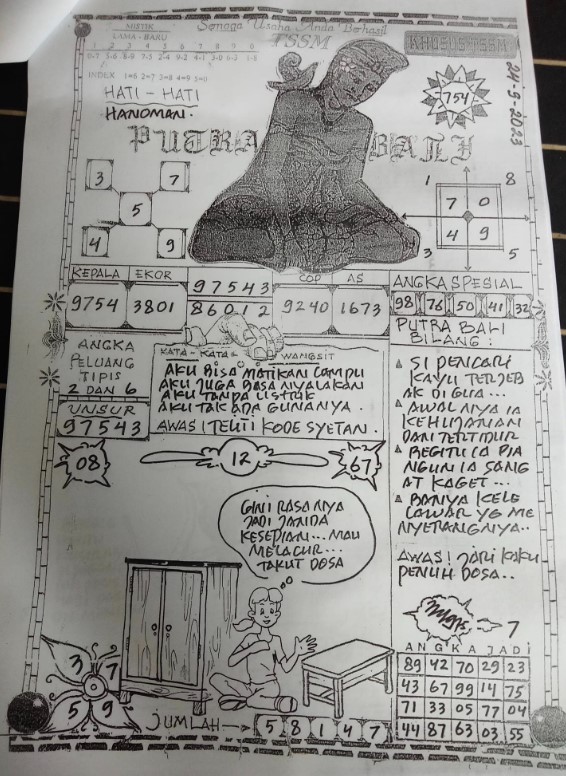 Semoga Usaha Anda Berhasil
MISTIK
LAMA - BARU
TSSM
KHUSUS TSSM
1 2 3 4 5 6 7 8 9 0
INDEX 1=6 2=7 3=8 4=9 5=0
HATI - HATI
HANOMAN.
754
24-5-2023
PUTRA BALI
3 7
5
4 9
1 8
7 0
4 9
3 5
KEPALA EKOR
9754 3801
97543
86012
COD AS
9240 1673
ANGKA SPESIAL
98 76 50 41 32
ANGKA
PELUANG
TIPIS
2 DAN 6
UNSUR
97543
KATA - KATA = WANGSIT
AKU BISA MATIKAN LAMPU
AKU JUGA BASA NYALAKAN
AKU TANPA LISTRIK
AKU TAK ADA GUNANYA.
AWAS! TELITI KODE SYETAN.
PUTRA BALI
BILANG:
SI PENCARI
KAYU TERJEB
AK DI GUA...
AWALNYA IA
KEHUJANAN
DAN TERTIDUR
BEGITU IA BA
NGUN IA SANG
AT KAGET...
BANYA KELE
LAWAR YG ME
NYERANGNYA..
AWAS! JARI KAKU
PENUH DOSA..
08
12
67
GINI RASANYA
JADI JANDA
KESEPIAN... MAU
MELACUR...
TAKUT DOSA
7
3 7
5 9
JUMLAH → 5 8 1 4 7
ANGKA JADI
89 42 70 29 23
43 67 99 14 75
71 33 05 77 04
44 87 63 03 55